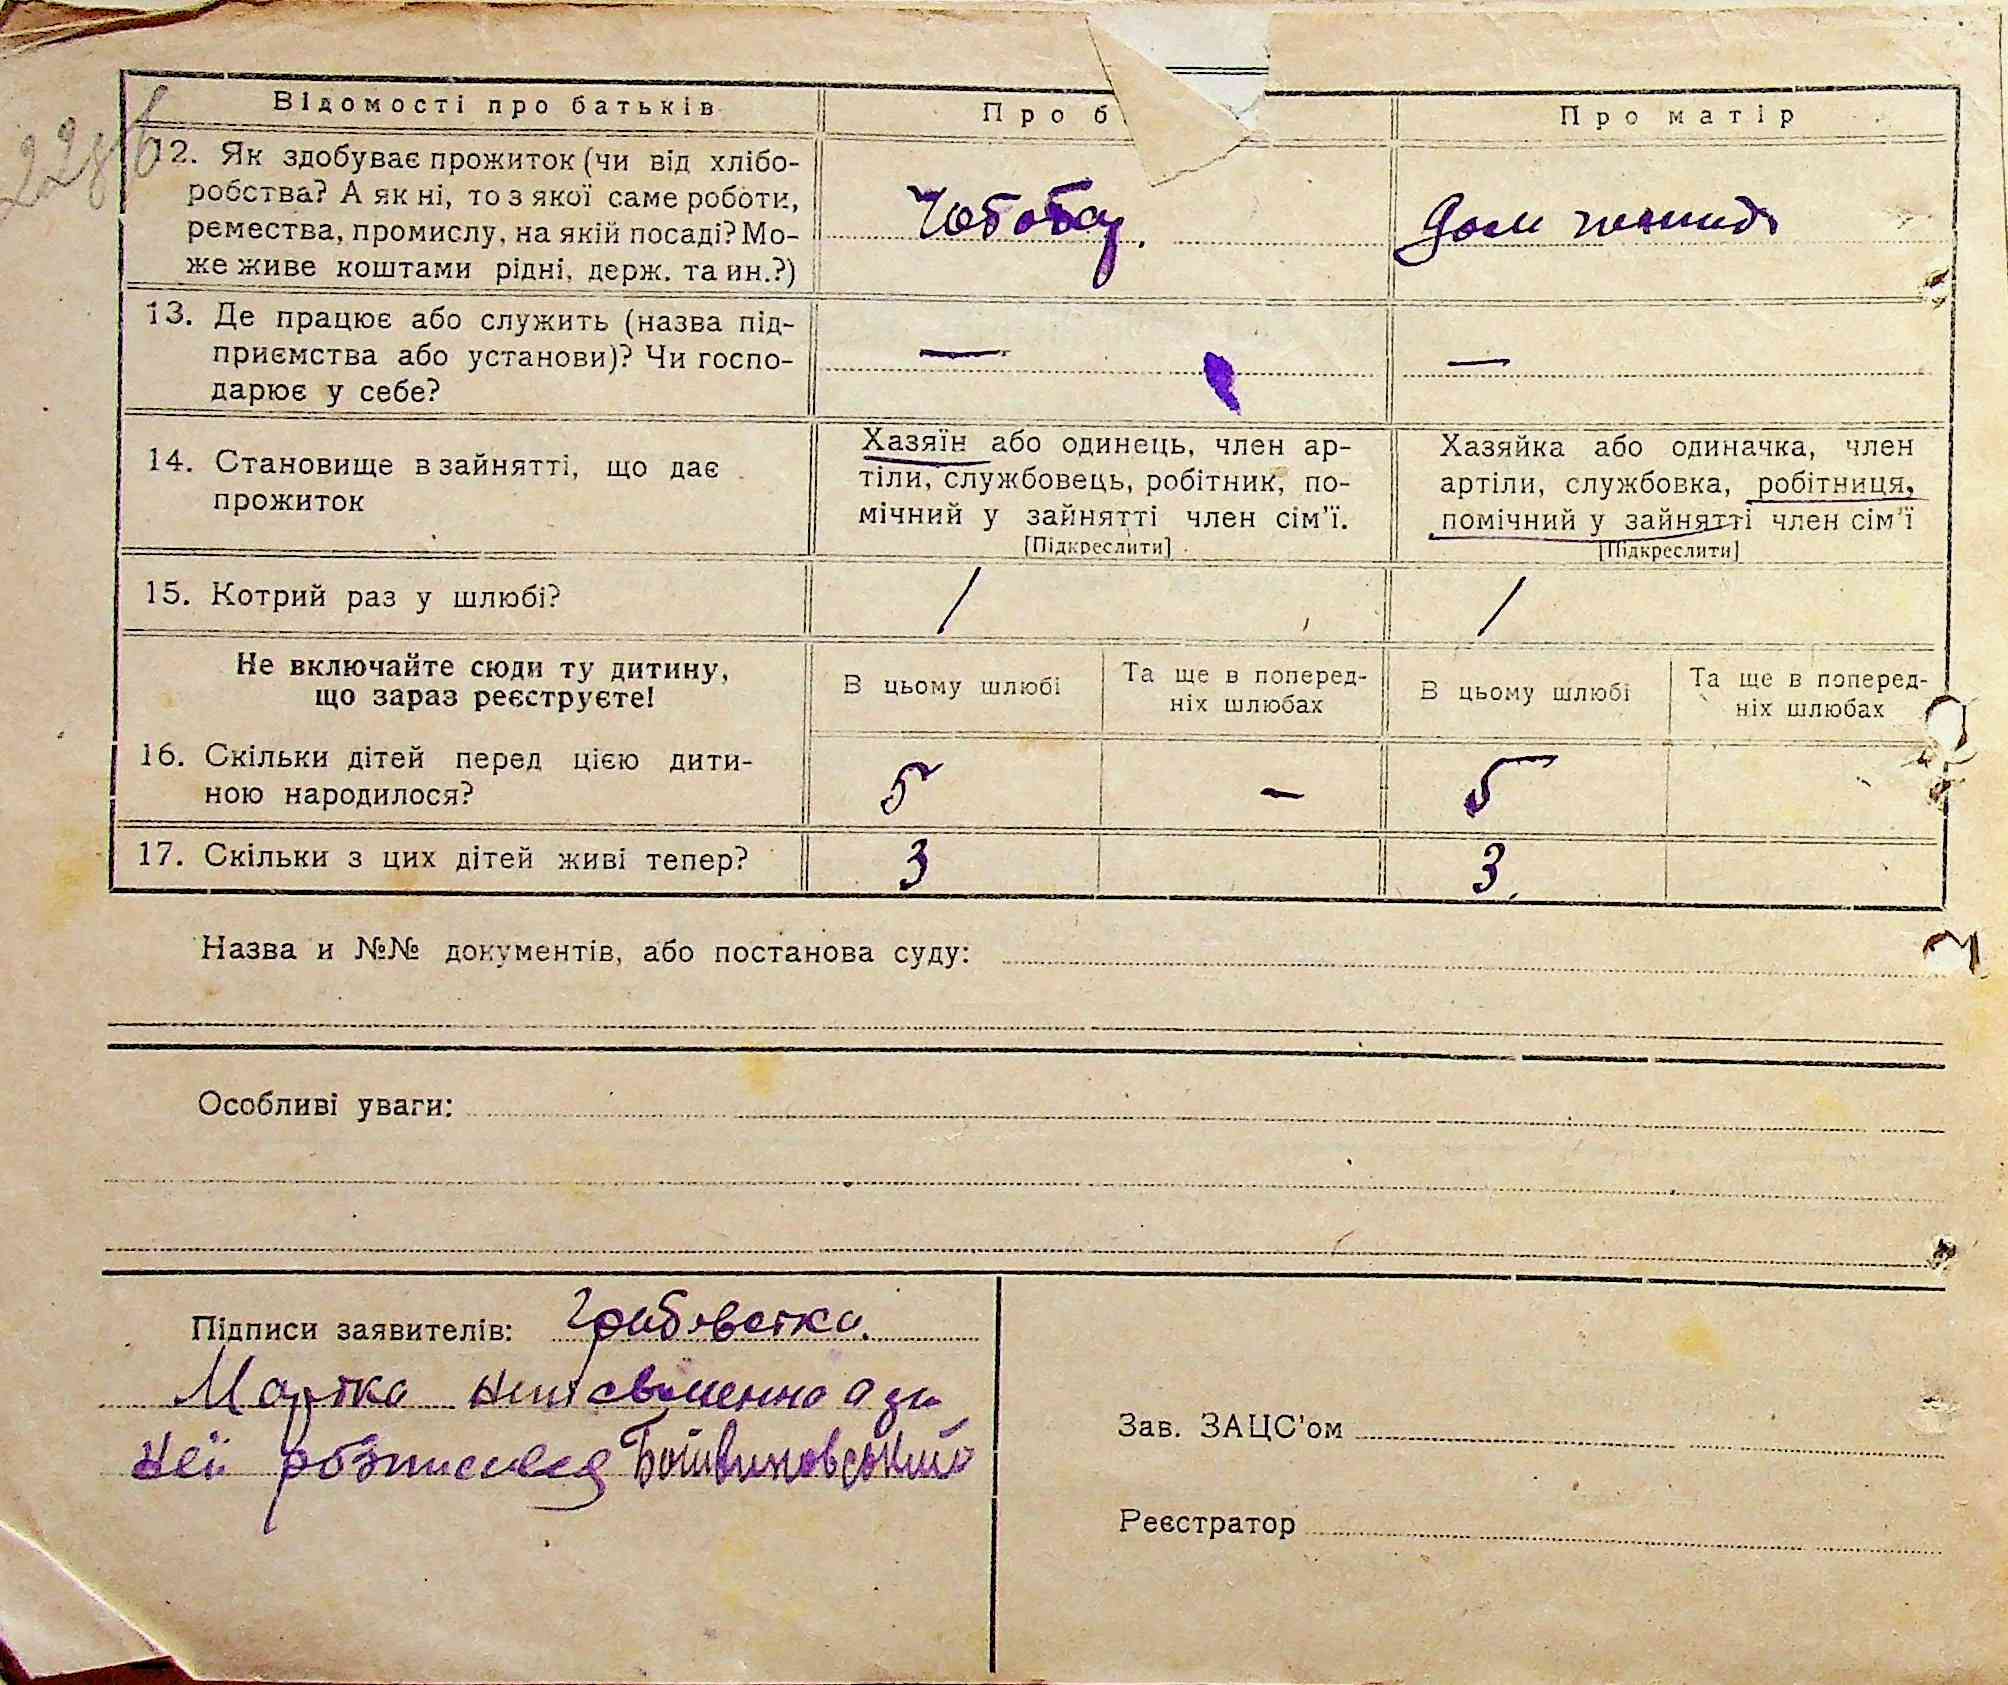 228б
Відомості про батьків
Про б
Про матір
12. Як здобуває прожиток (чи від хлібо-
робства? А як ні, то з якої саме роботи,
ремества, промислу, на якій посаді? Мо-
же живе коштами рідні, держ. та ин.?)
Чоботар.
Дом
13. Де працює або служить (назва під-
приємства або установи)? Чи госпо-
дарює у себе?
—
—
14. Становище в зайнятті, що дає
прожиток
Хазяїн або одинець, член ар-
тіли, службовець, робітник, по-
мічний у зайнятті член сім'ї.
[Підкреслити]
Хазяйка або одиначка, член
артіли, службовка, робітниця,
помічний у зайнятті член сім'ї
[Підкреслити]
15. Котрий раз у шлюбі?
/
/
Не включайте сюди ту дитину,
що зараз реєструєте!
В цьому шлюбі
Та ще в поперед-
ніх шлюбах
В цьому шлюбі
Та ще в поперед-
ніх шлюбах
16. Скільки дітей перед цією дити-
ною народилося?
5
–
5
17. Скільки з цих дітей живі тепер?
3
3
Назва и №№ документів, або постанова суду:
Особливі уваги:
Підписи заявителів:
а за
неї
Зав. ЗАЦС'ом
Реєстратор